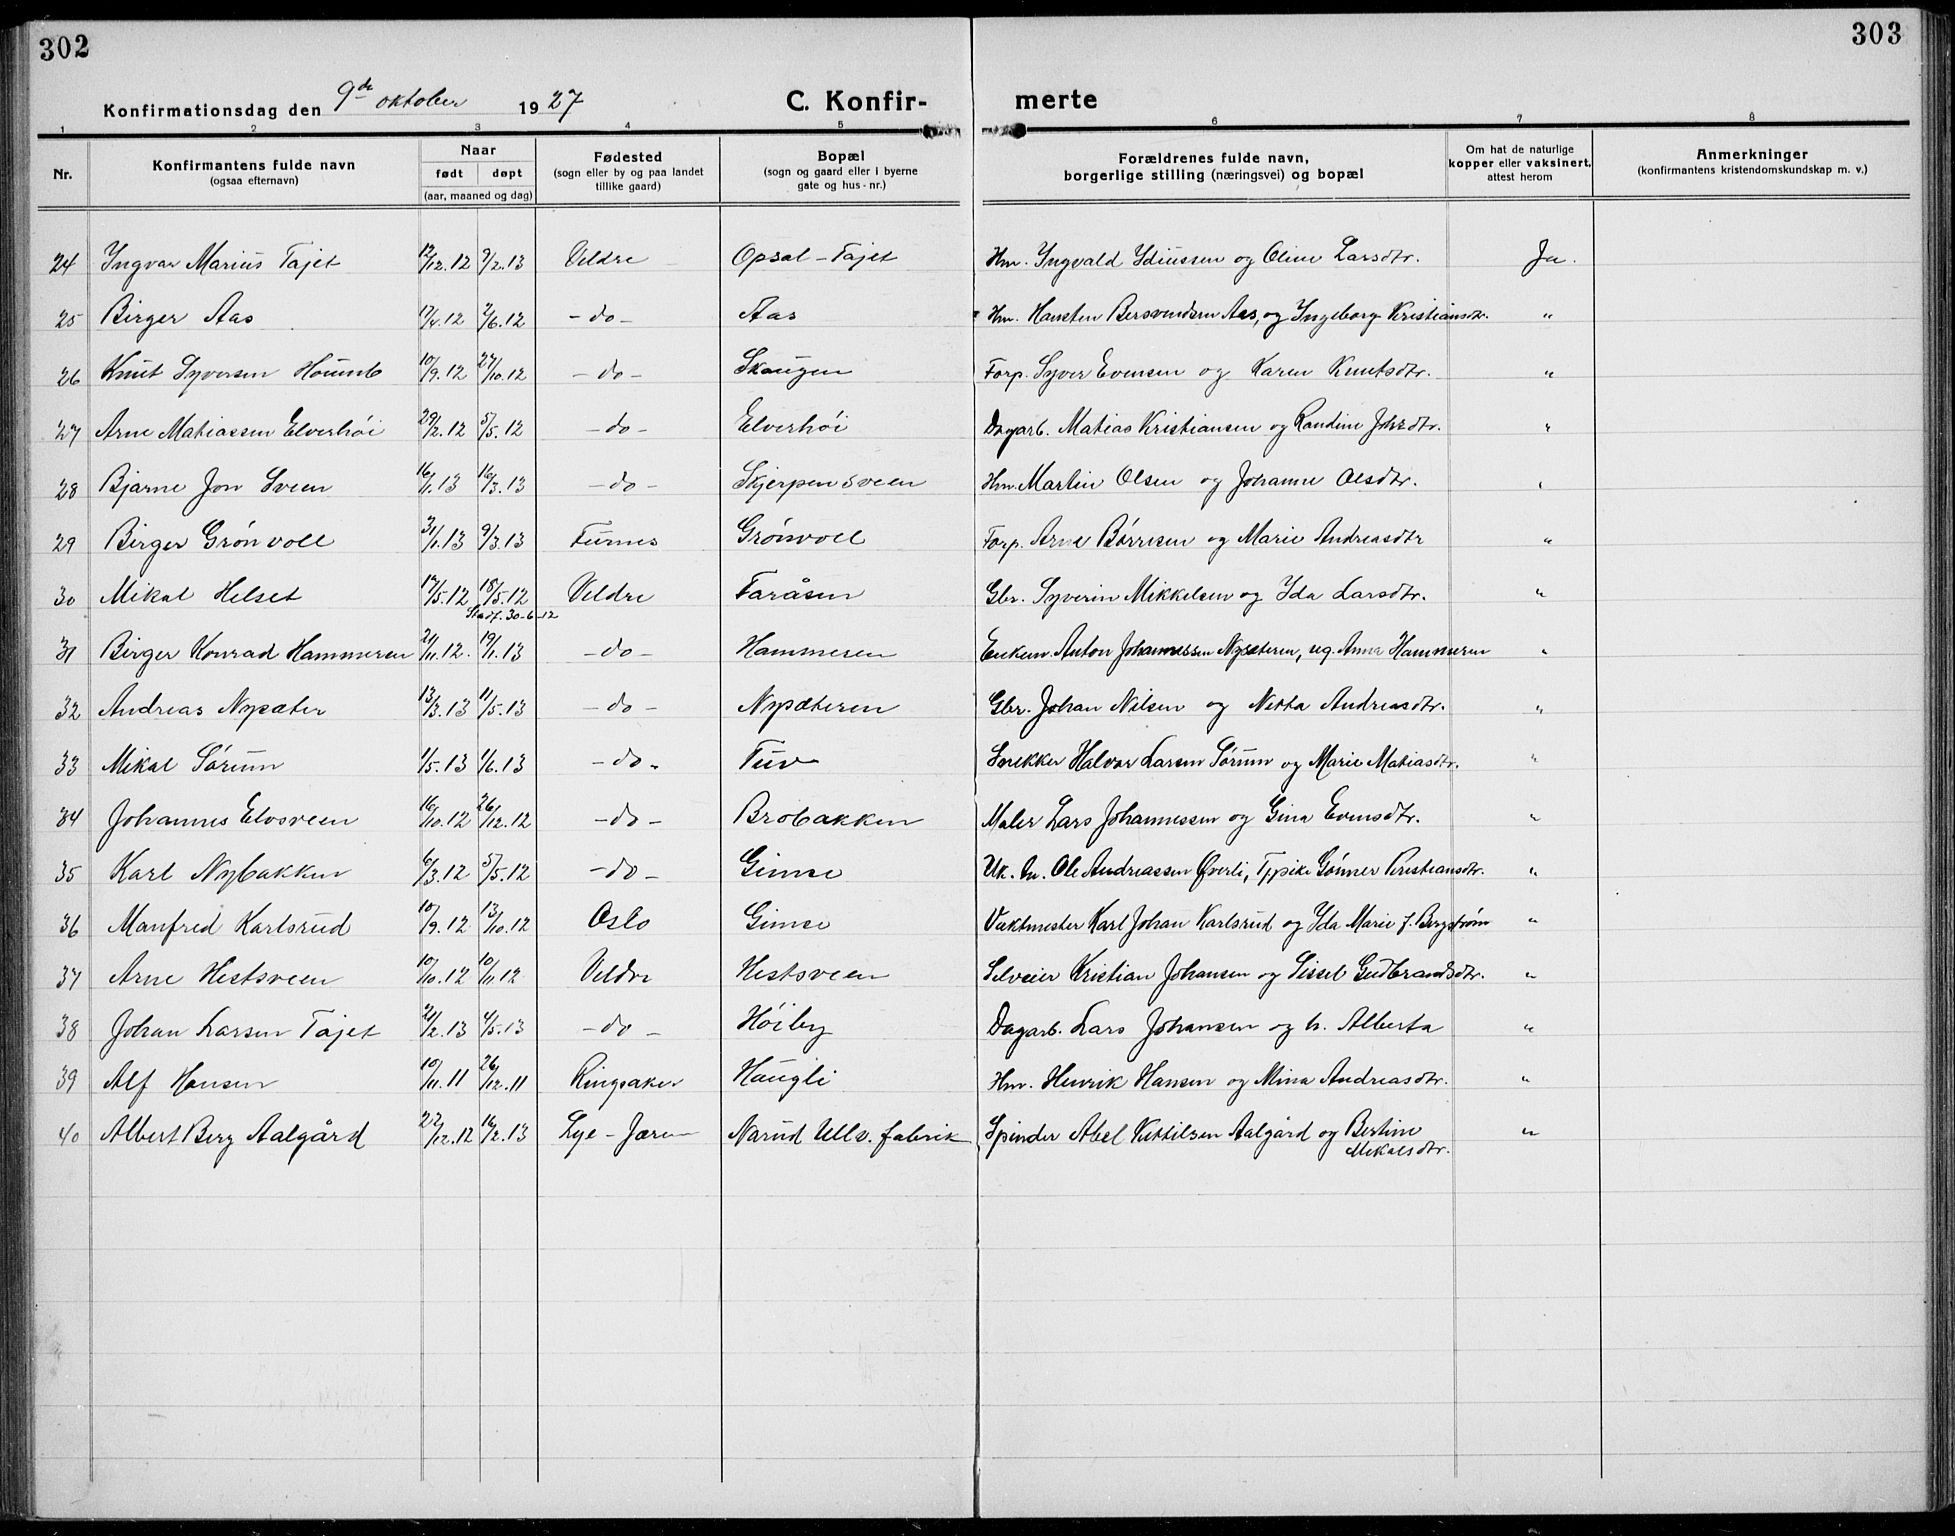 302
303
Konfirmationsdag den 9de oktober 1927
C. Konfir-
merte
1 2 3 4 5 6 7 8
Nr.
Konfirmantens fulde navn
(ogsaa efternavn)
Naar
født døpt
(aar, maaned og dag)
Fødested
(sogn eller by og paa landet
tillike gaard)
Bopæl
(sogn og gaard eller i byerne
gate og hus-nr.)
Forældrenes fulde navn,
borgerlige stilling (næringsvei) og bopæl
Om hat de naturlige
kopper eller vaksinert,
attest herom
Anmerkninger
(konfirmantens kristendomskundskap m. v.)
24 Ingvar Marius Tajet 12/12.12 2/2.13 Veldre Opsal - Tajet Hm. Ingvald Idiussen og Oline Larsdtr. Ja.
25 Birger Aas 17/4.12 2/6.12 -do- Aas Hm. Hansten Bersvendsen Aas, og Ingeborg Kristiansdtr. "
26 Knut Syversen Houmb 10/9.12 27/10.12 -do- Skaugen Forp. Syver Evensen og Karen Knutsdtr. "
27 Arne Matiassen Elverhöi 29/2.12 5/5.12 -do- Elverhöi Dagarb. Matias Kristiansen og Randine Johsdtr. "
28 Bjarne Jon Sveen 16/1.13 16/3.13 -do- Skjerpensveen Hm. Martin Olsen og Johanne Olsdtr. "
29 Birger Grönvoll 31/1.13 9/3.13 Furnes Grönvoll Forp. Arne Börresen og Marie Andreasdtr "
30 Mikal Helset 17/5.12 18/5.12 Veldre Faråsen Gbr. Syverin Mikkelsen og Ida Larsdtr. "
Stadf. 30-6-12
31 Birger Konrad Hammeren 21/11.12. 19/1.13 -do- Hammeren Enkem. Anton Johannessen Nysæteren, ug. Anna Hammeren "
32 Andreas Nysæter 13/3.13 11/5.13 -do- Nysæteren Gbr. Johan Nilsen og Netta Andreasdtr. "
33 Mikal Sörum 1/5.13 1/6.13 -do- Tuv Snekker Halvor Larsen Sörum og Marie Matiasdtr. "
34 Johannes Elvsveen 16/10.12 26/12.12 -do- Brobakken Maler Lars Johannessen og Gina Evensdtr. "
35 Karl Nybakken 6/3.12 5/5.12 -do- Gimse Uk. Ole Andreassen Överli, Tppike Gönner Kristiansdtr. "
36 Manfred Karlsrud 10/9.12 13/10.12 Oslo Gimse Vaktmester Karl Johan Karlsrud og Ida Marie f. Bergström "
37 Arne Hestsveen 10/10.12 10/11.12 Veldre Hestsveen Selveier Kristian Johansen og Sissel Gudbrandsdtr. "
38 Johan Larsen Tajet 21/2.13 4/5.13 -do- Höiby Dagarb. Lars Johansen og h. Alberta "
39 Alf Hansen 10/11.11 26/12.11 Ringsaker Haugli Hm. Henrik Hansen og Mina Andreasdtr. "
40 Albert Berg Aalgård 27/12.12 16/2.13 Lye - Jæren Narud Ullv. fabrik Spinder Abel Kittilsen Aalgård og Bertine "
Mikalsdtr.